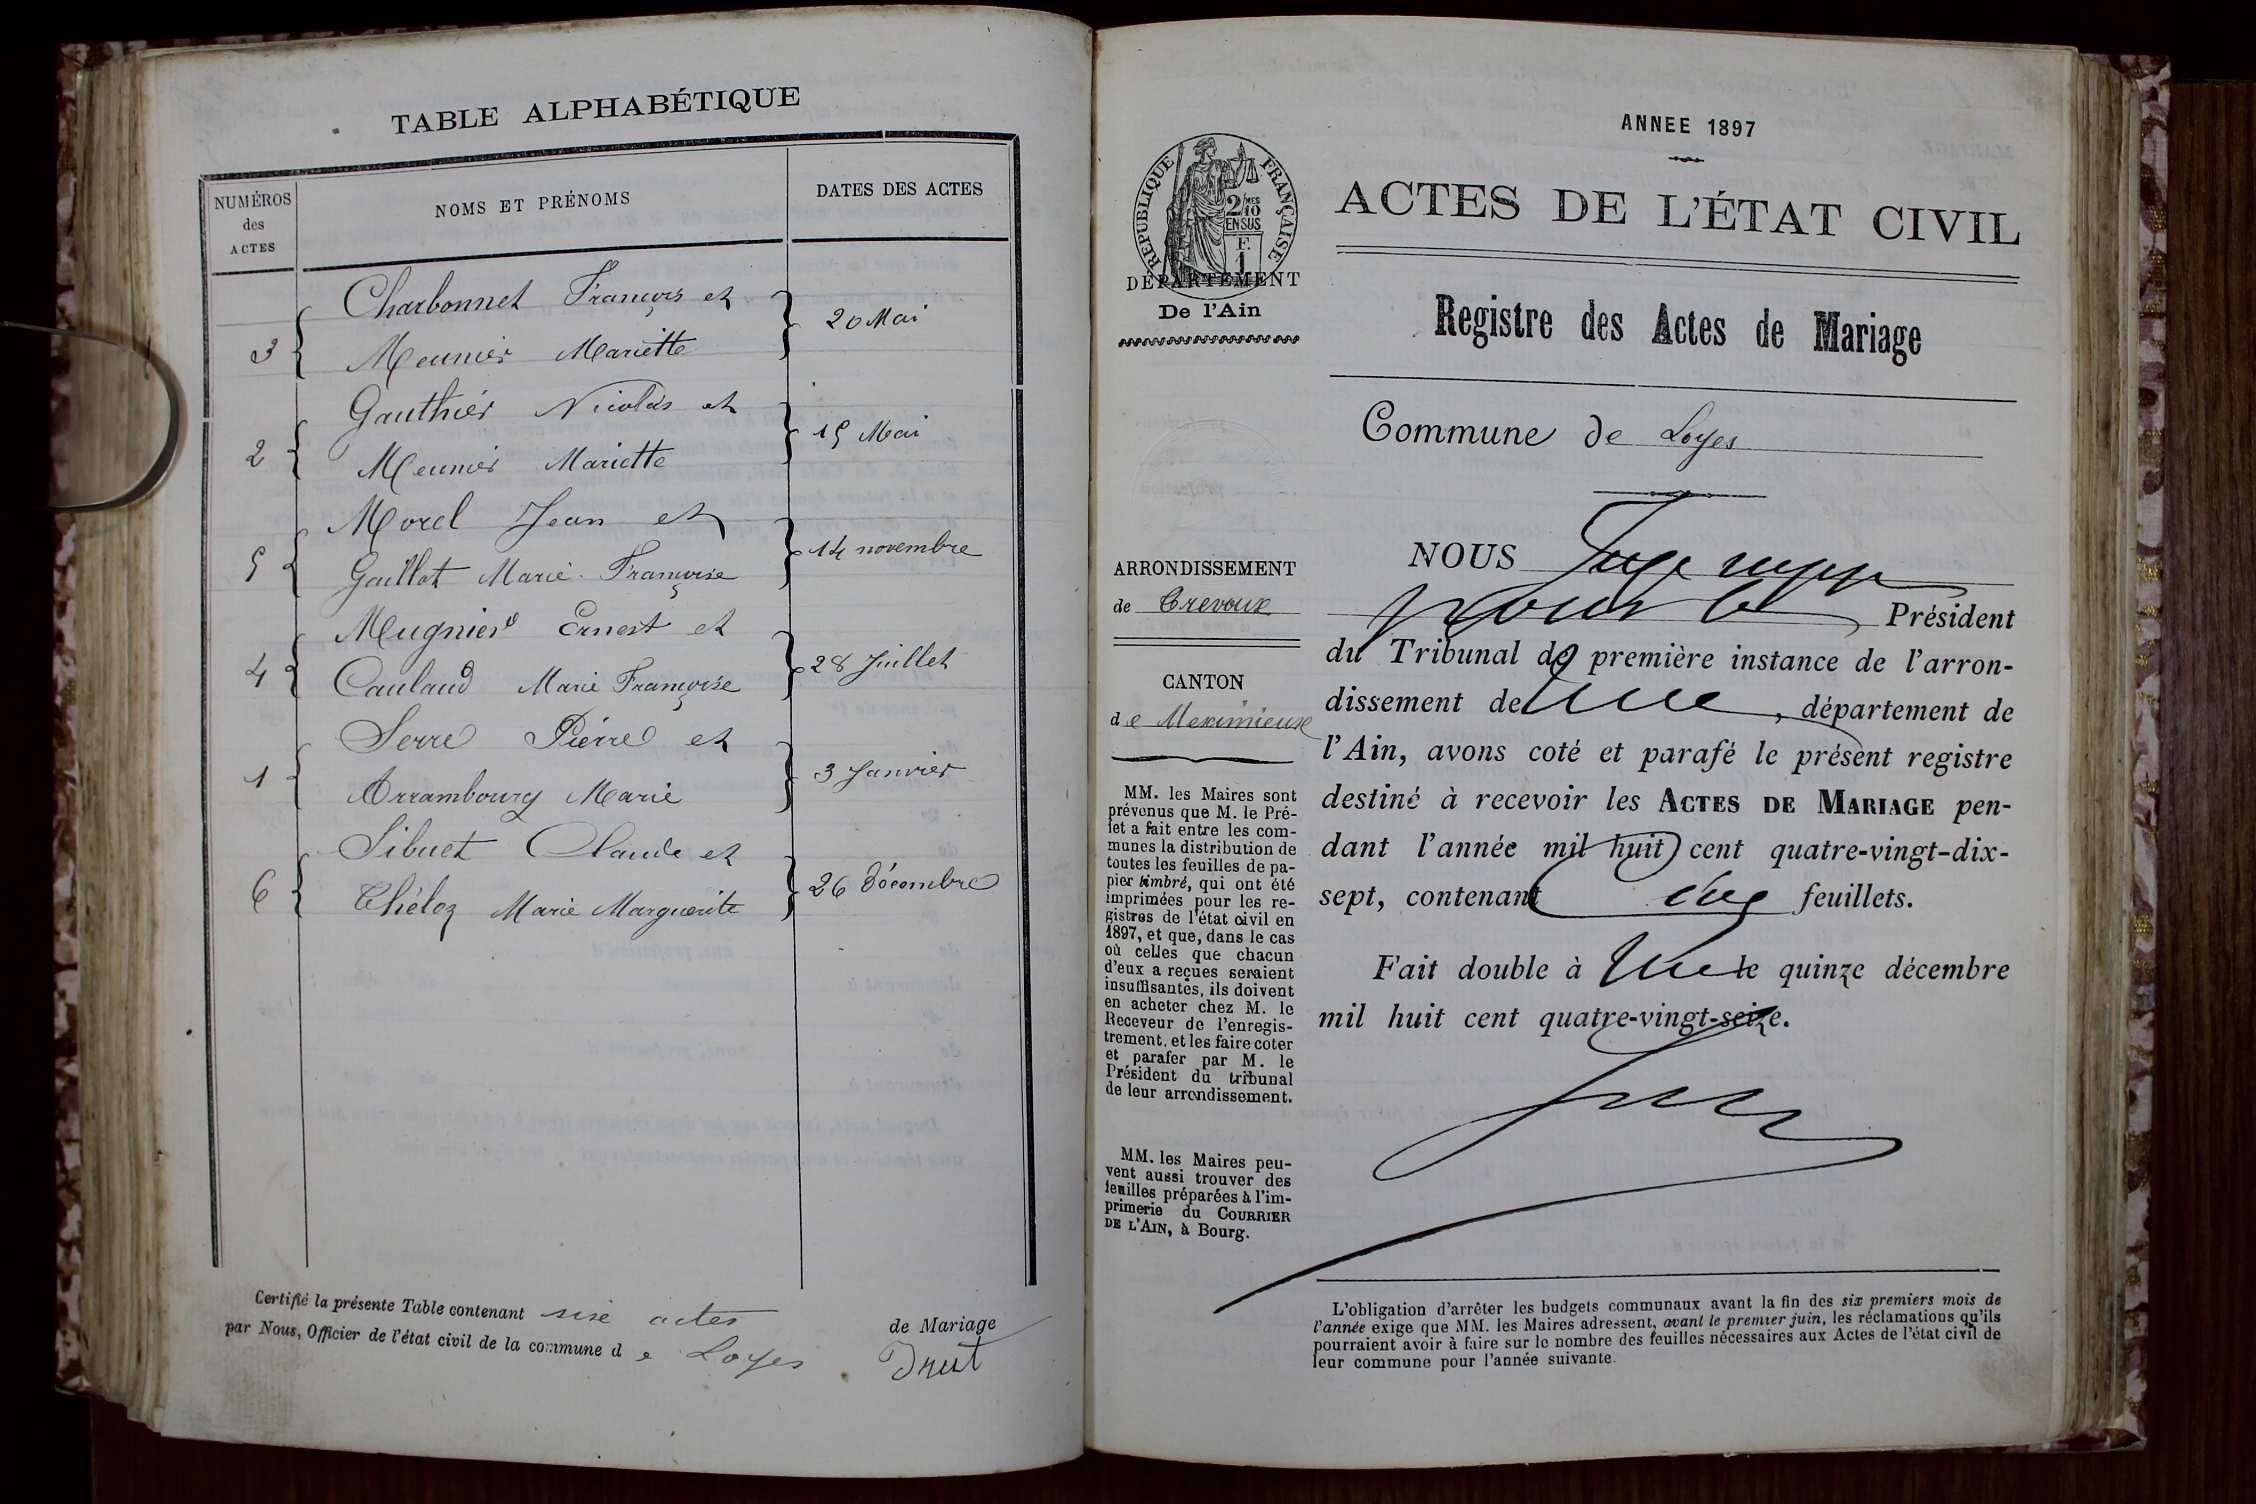 TABLE ALPHABÉTIQUE
NUMÉROS
des
ACTES
NOMS ET PRÉNOMS
DATES DES ACTES
Charbonnet François et
3
20 Mai
Meunier Mariette
Gauthier Nicolas et
2
15 Mai
Meunier Mariette
Morel Jean et
5
14 novembre
Gaillot Marie Françoise
Mugnier Ernest et
4
28 Juillet
Caulaud Marie Françoise
Serre Pierre et
1
3 Janvier
Arrambourg Marie
Sibuet Claude et
6
26 décembre
Théloz Marie Marguerite
Certifié la présente Table contenant sixe actes de Mariage
par Nous, Officier de l'état civil de la commune de Loyes
Drut
ANNEE 1897
REPUBLIQUE FRANÇAISE
2/10 MES
EN SUS
F.
1
DÉPARTEMENT
De l'Ain
ACTES DE L'ÉTAT CIVIL
Registre des Actes de Mariage
Commune de Loyes
ARRONDISSEMENT
de Trevoux
CANTON
de Meximieux
MM. les Maires sont
prévenus que M. le Pré-
fet a fait entre les com-
munes la distribution de
toutes les feuilles de pa-
pier timbré, qui ont été
imprimées pour les re-
gistres de l'état civil en
1897, et que, dans le cas
où celles que chacun
d'eux a reçues seraient
insuffisantes, ils doivent
en acheter chez M. le
Receveur de l'enregis-
trement, et les faire coter
et parafer par M. le
Président du tribunal
de leur arrondissement.
MM. les Maires peu-
vent aussi trouver des
feuilles préparées à l'im-
primerie du COURRIER
DE L'AIN, à Bourg.
NOUS Juge
pour le Président
du Tribunal de première instance de l'arron-
dissement de , département de
l'Ain, avons coté et parafé le présent registre
destiné à recevoir les ACTES DE MARIAGE pen-
dant l'année mil huit cent quatre-vingt-dix-
sept, contenant cinq feuillets.
Fait double à le quinze décembre
mil huit cent quatre-vingt-seize.
L'obligation d'arrêter les budgets communaux avant la fin des six premiers mois de
l'année exige que MM. les Maires adressent, avant le premier juin, les réclamations qu'ils
pourraient avoir à faire sur le nombre des feuilles nécessaires aux Actes de l'état civil de
leur commune pour l'année suivante.